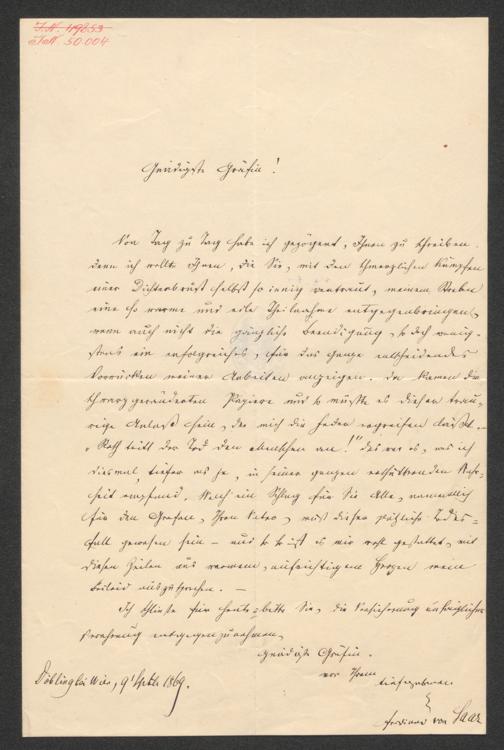 I.N. 49853
I.N. 50.004
Gnädigste Gräfin!
Von Tag zu Tag habe ich gezögert, Ihnen zu schreiben,
denn ich wollte Ihnen, die Sie, mit den schmerzlichen Kämpfen
einer Dichterbrust selbst so innig vertraut, meinem Streben
eine so warme und edle Theilnahme entgegenbringen,
wenn auch nicht die gänzliche Beendigung, so doch wenig-
stens ein erfolgreiches, für das Ganze entscheidendes
Vorrücken meiner Arbeiten anzeigen. Da kamen die
schwarzgeränderten Papiere und so mußte es dieser trau-
rige Anlaß sein, der mich die Feder ergreifen läßt. —
"Rasch tritt der Tod den Menschen an!" das war es, was ich
diesmal, tiefer als je, in seiner ganzen erschütternden Wahr-
heit empfand. Welch' ein Schlag für Sie Alle, namentlich
für den Grafen, Ihren, muß dieser plötzliche Todes-
fall gewesen sein — und so ist es mir wohl gestattet, mit
diesen Zeilen aus warmem, aufrichtigem Herzen mein
Beileid auszusprechen. —
Ich schließe für heute = bitte Sie, die Versicherung
Verehrung entgegenzunehmen,
gnädigste Gräfin.
von Ihrem
tiefergebenen
Ferdinand von Saar
Döbling bei Wien, 9' Septbr 1869.